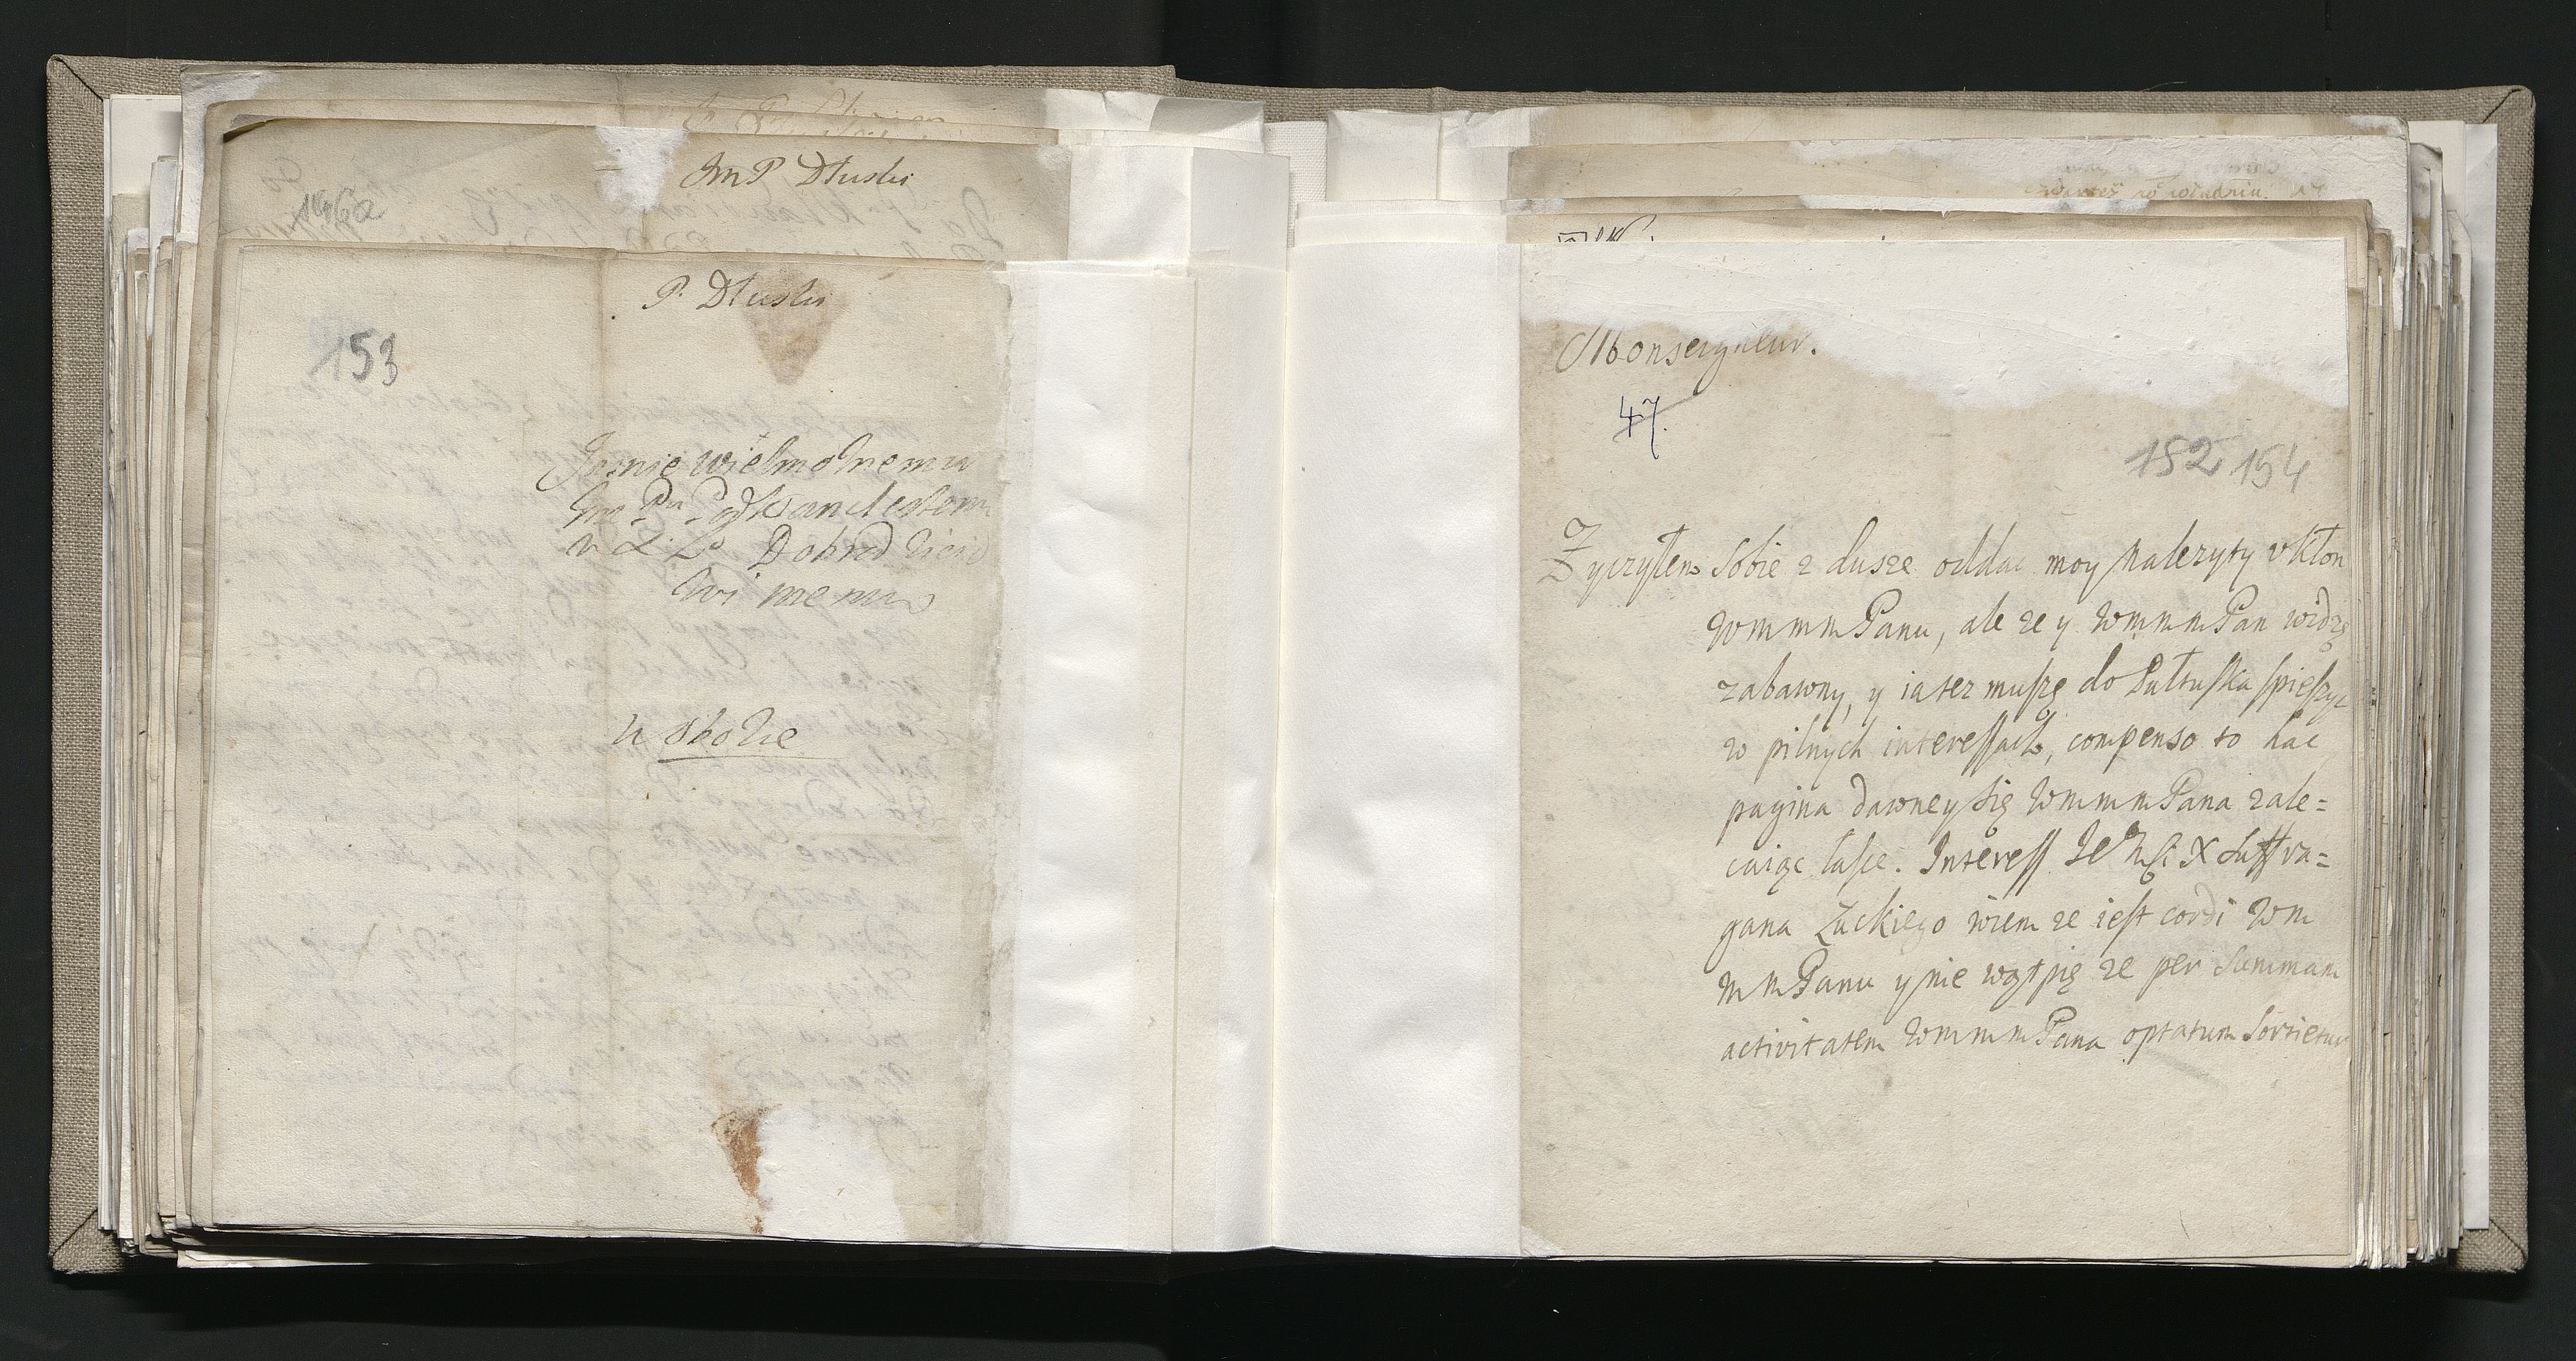 Im P Dłuski
146a
P. Dłuski
153
Jasnie wielmożnemu
Podkanclerzemu
Dobrodzieio
wi memu
w obozie
Monseigneur.
47.
152 154
Zyczyłem sobie z dusze oddac moy nalezyty vkłon
WmmmPanu, ale ze y WmmmPan widzę
zabawny, y ia tez muszę do Pułtuska spieszyc
w pilnych interessach, compenso to hac
pagina dawney się WmmmPana zale=
caiąc łasce. Interess X Suffra=
gana Łuckiego wiem ze iest cordi Wm
mmPanu y nie wątpię ze per summam
activitatem WmmmPana optatum sortietur